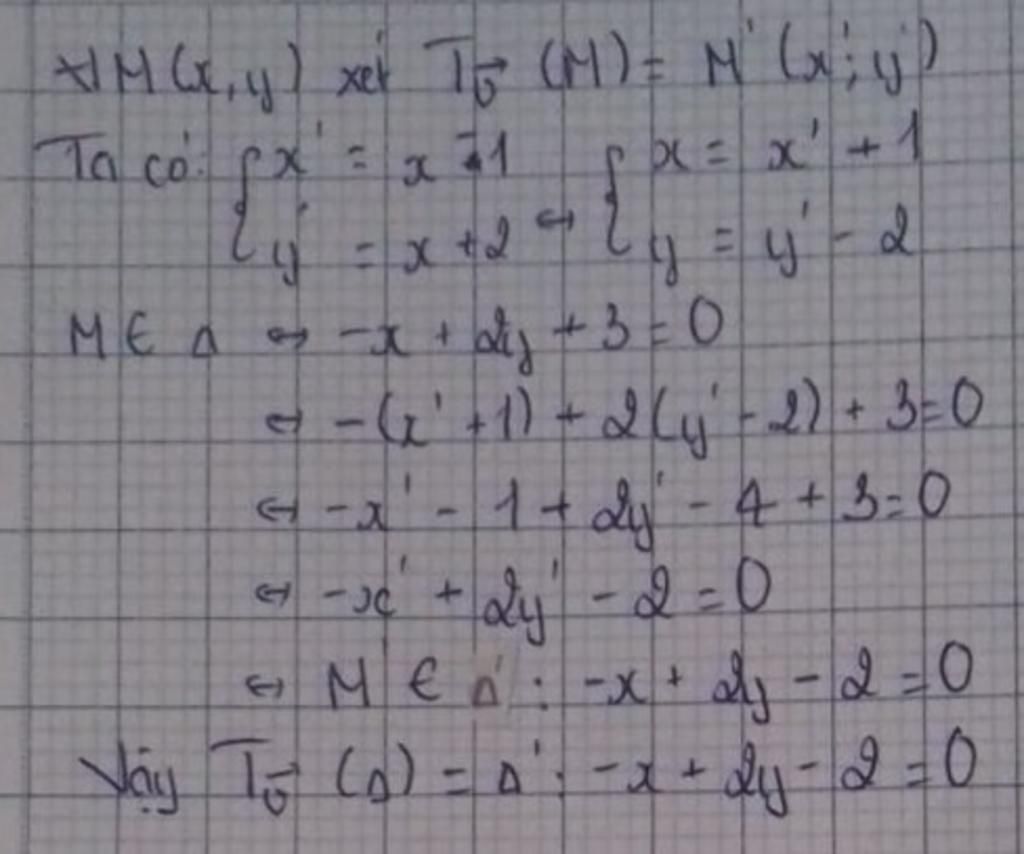 ∀M(x,y) xét T_v⃗ (M) = M' (x'; y')
Ta có: { x' = x - 1 ; y' = x + 2 ⇔ { x = x' + 1 ; y = y' - 2
M ∈ Δ ⇔ -x + 2y + 3 = 0
⇔ -(x' + 1) + 2(y' - 2) + 3 = 0
⇔ -x' - 1 + 2y' - 4 + 3 = 0
⇔ -x' + 2y' - 2 = 0
⇔ M ∈ Δ' : -x + 2y - 2 = 0
Vậy T_v⃗ (Δ) = Δ' : -x + 2y - 2 = 0